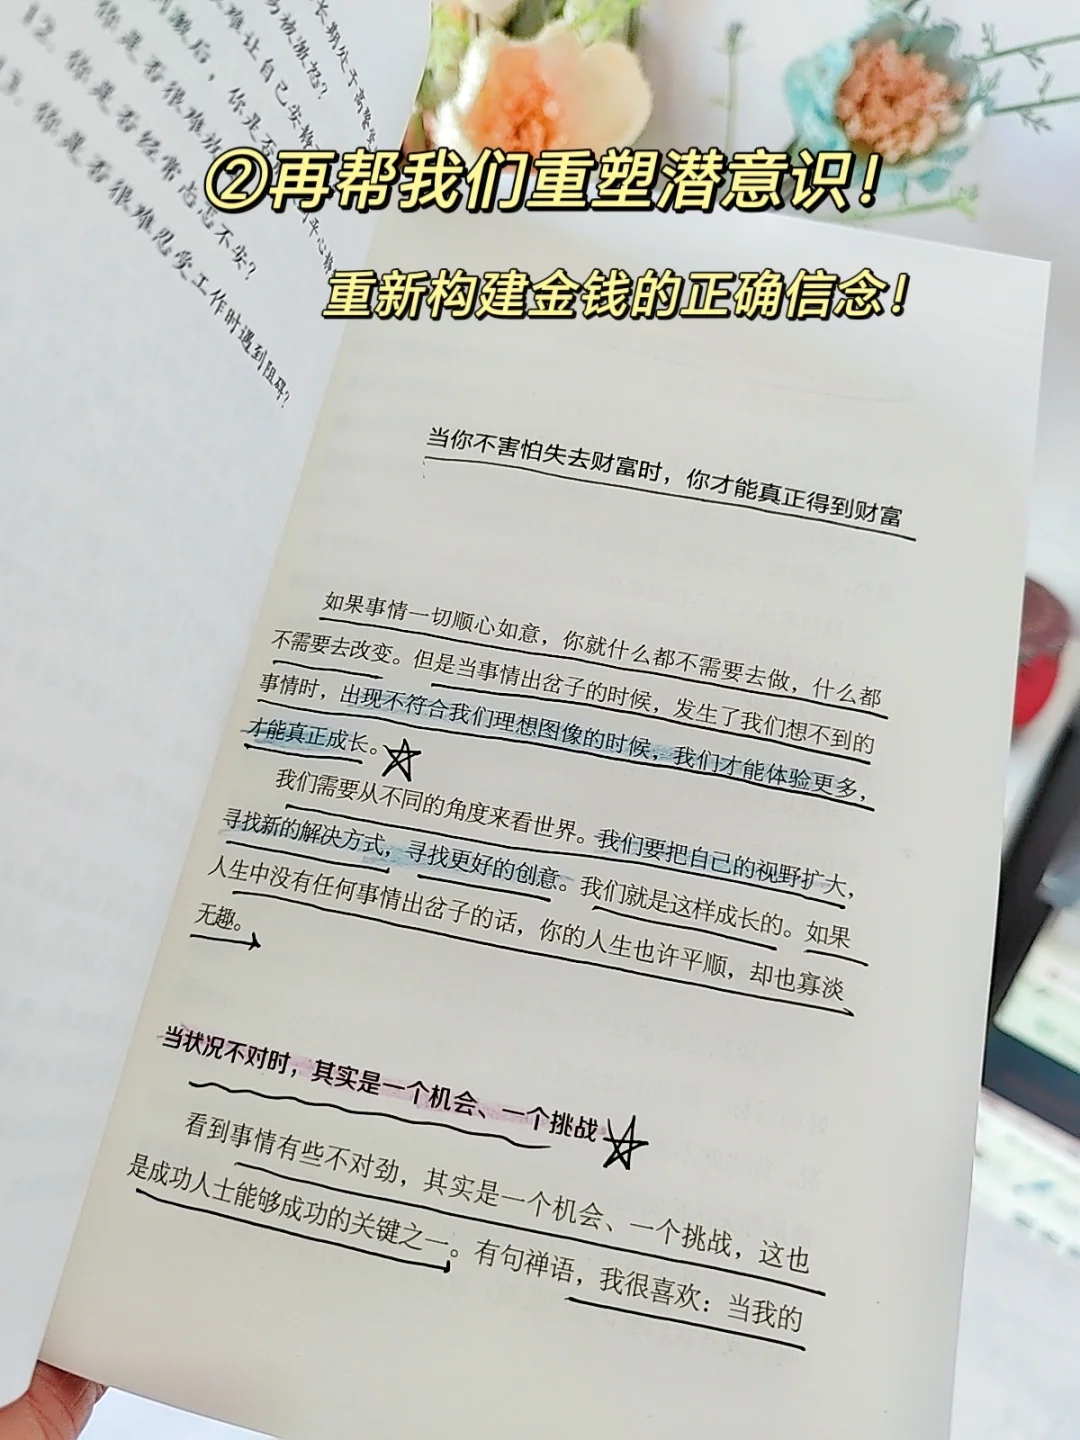 ②再帮我们重塑潜意识！
重新构建金钱的正确信念！
12. 你是否经常忐忑不安？
13. 你是否很难忍受工作时遇到阻碍？
当你不害怕失去财富时，你才能真正得到财富
如果事情一切顺心如意，你就什么都不需要去做，什么都
不需要去改变。但是当事情出岔子的时候，发生了我们想不到的
事情时，出现不符合我们理想图像的时候，我们才能体验更多，
才能真正成长。
我们需要从不同的角度来看世界。我们要把自己的视野扩大，
寻找新的解决方式，寻找更好的创意。我们就是这样成长的。如果
人生中没有任何事情出岔子的话，你的人生也许平顺，却也寡淡
无趣。
当状况不对时，其实是一个机会、一个挑战
看到事情有些不对劲，其实是一个机会、一个挑战，这也
是成功人士能够成功的关键之一。有句禅语，我很喜欢：当我的